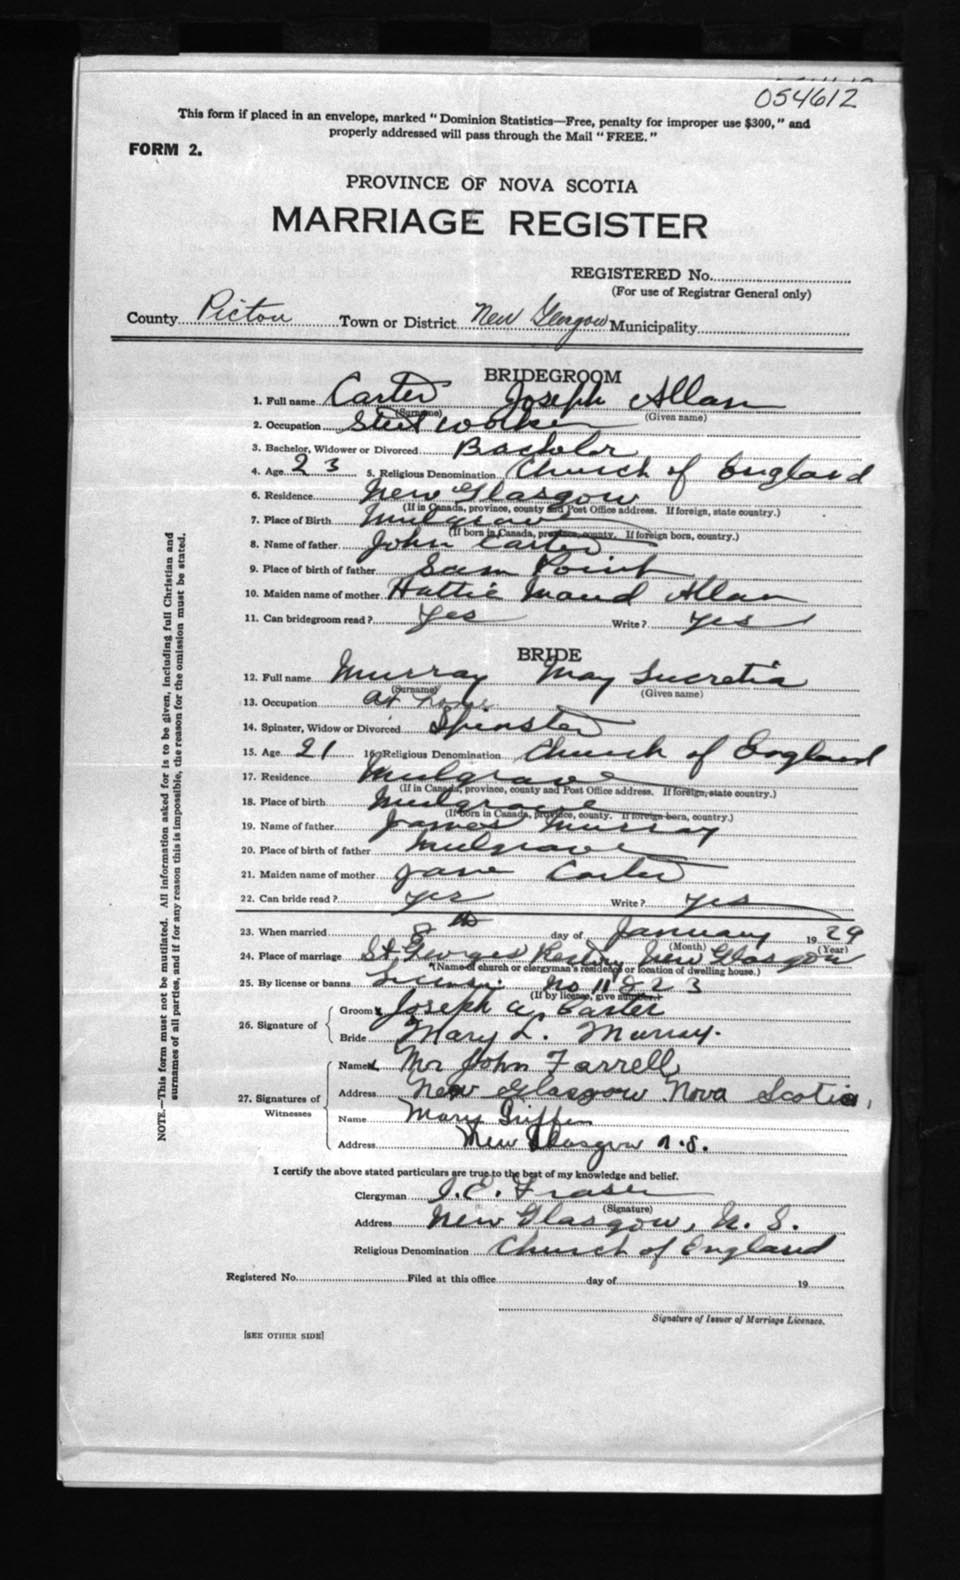 054612
This form if placed in an envelope, marked "Dominion Statistics—Free, penalty for improper use $300," and
properly addressed will pass through the Mail "FREE."
FORM 2.
PROVINCE OF NOVA SCOTIA
MARRIAGE REGISTER
REGISTERED No.
(For use of Registrar General only)
County Pictou Town or District New Glasgow Municipality
BRIDEGROOM
1. Full name Carter Joseph Allan
(Surname) (Given name)
2. Occupation Steel worker
3. Bachelor, Widower or Divorced Bachelor
4. Age 23 5. Religious Denomination Church of England
6. Residence New Glasgow
(If in Canada, province, county and Post Office address. If foreign, state country.)
7. Place of Birth Mulgrave
(If born in Canada, province, county. If foreign born, country.)
8. Name of father John Carter
9. Place of birth of father Sam Point
10. Maiden name of mother Hattie Maud Allan
11. Can bridegroom read? Yes Write? Yes
BRIDE
12. Full name Murray May Lucretia
(Surname) (Given name)
13. Occupation At home
14. Spinster, Widow or Divorced Spinster
15. Age 21 16. Religious Denomination Church of England
17. Residence Mulgrave
(If in Canada, province, county and Post Office address. If foreign, state country.)
18. Place of birth Mulgrave
(If born in Canada, province, county. If foreign born, country.)
19. Name of father James Murray
20. Place of birth of father Mulgrave
21. Maiden name of mother Jane Carter
22. Can bride read? Yes Write? Yes
23. When married 8th day of January 1929
(Month) (Year)
24. Place of marriage St. Georges Rectory New Glasgow
(Name of church or clergyman's residence or location of dwelling house.)
25. By license or banns License No 11823
(If by license, give number.)
26. Signature of
Groom Joseph A. Carter
Bride Mary L. Murray.
27. Signatures of Witnesses
Name Mr John Farrell
Address New Glasgow Nova Scotia,
Name Mary Griffin
Address New Glasgow N.S.
I certify the above stated particulars are true to the best of my knowledge and belief.
Clergyman J. E. Fraser
(Signature)
Address New Glasgow, N. S.
Religious Denomination Church of England
Registered No. Filed at this office day of 19
Signature of Issuer of Marriage Licenses.
[SEE OTHER SIDE]
NOTE.—This form must not be mutilated. All information asked for is to be given, including full Christian and
surnames of all parties, and if for any reason this is impossible, the reason for the omission must be stated.